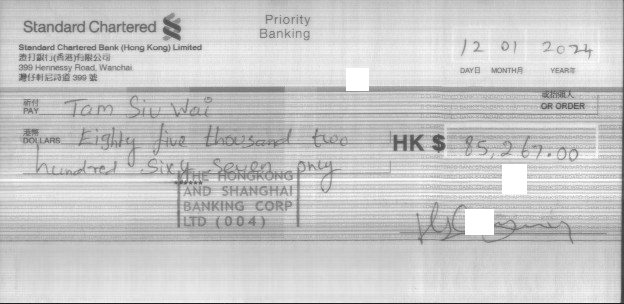 Standard Chartered
Priority
Banking
Standard Chartered Bank (Hong Kong) Limited
渣打銀行(香港)有限公司
399 Hennessy Road, Wanchai
灣仔軒尼詩道 399 號
12 01 2024
DAY日 MONTH月 YEAR年
祈付
PAY Tam Siu Wai
或指個人
OR ORDER
港幣
DOLLARS Eighty five thousand two
hundred Sixty Seven only
HK $ 85,267.00
THE HONGKONG
AND SHANGHAI
BANKING CORP
LTD (004)